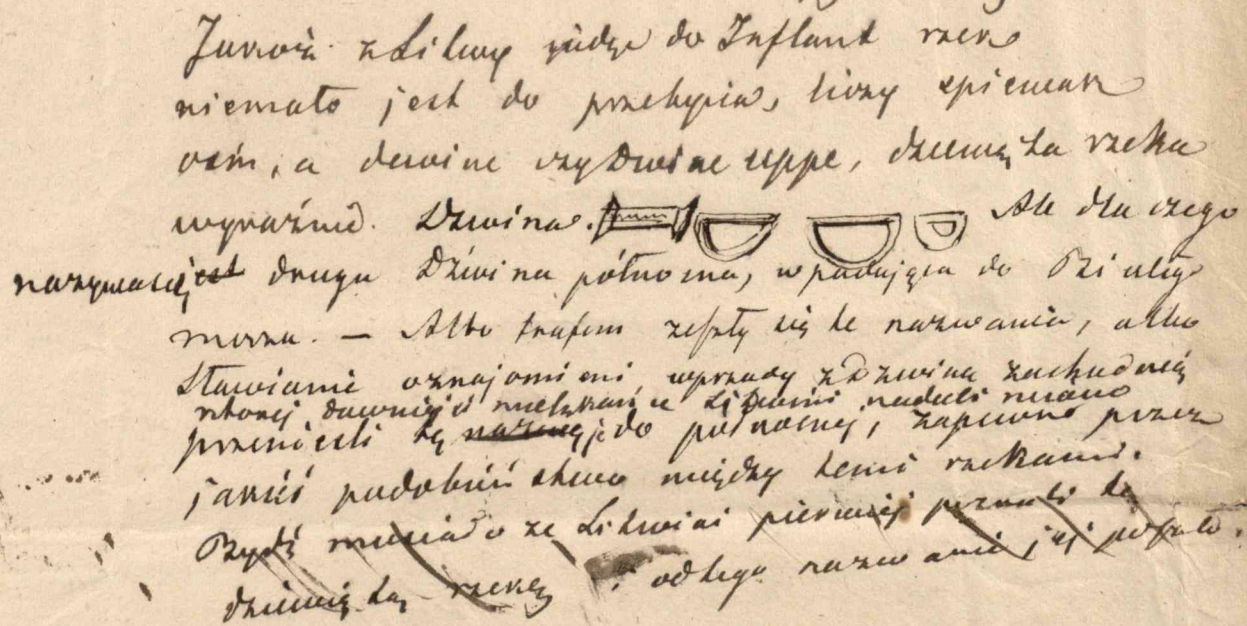 Jakoż z Litwy jadąc do Inflant rzek
niemało jest do przebycia, liczy śpiewak
ośm, a dewine czy Dwine uppe, dziewiąta rzeka
wyraźnie Dzwina. Ale dla czego
nazywa się jest druga Dźwina północna, wpadająca do Białego
morza. — Albo trafem zeszły się te nazwania, albo
Sławianie oznajomieni wprzody z Dzwiną zachodnią
ktorej dawniejsi mieszkańce Litwini nadali miano
przenieśli ję do północnej, zapewne przez
jakieś podobieństwo między temi rzekami.
Bydź musiało że Litwini pierwiej poznali tę
dziewiątą rzekę i od tego nazwanie jej poszło.